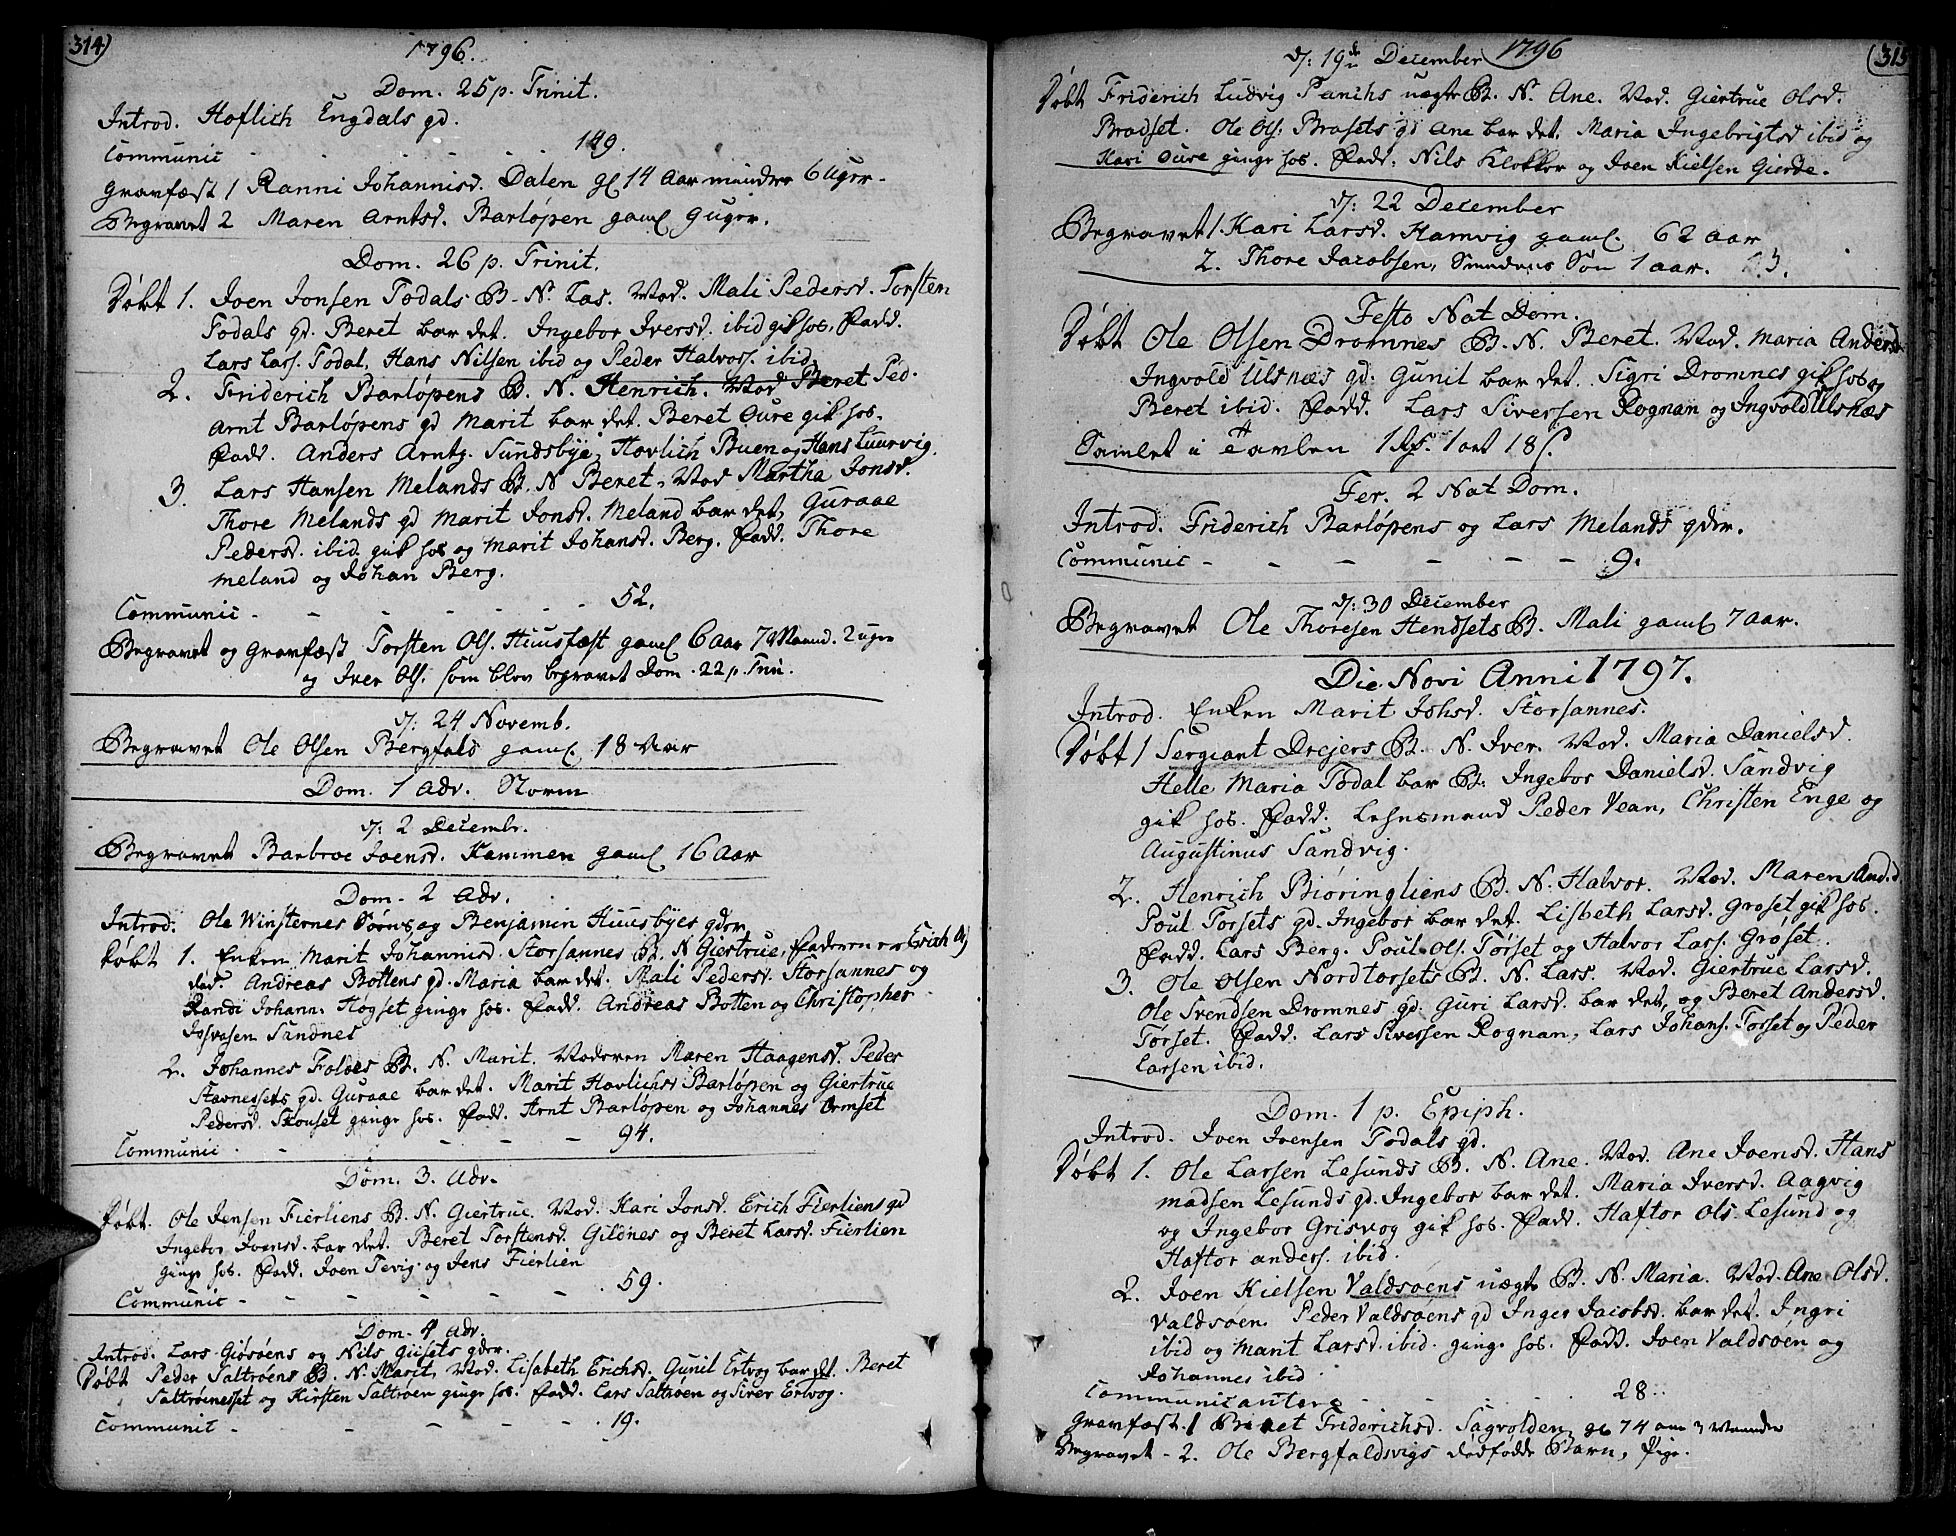 314)
1796.
Dom. 25 p. Trinit.
Introd. Hoflich Engdals gd.
Communic - - - - - 149.
Gravfæst 1 Ranni Johannisd. Dalen gl 14 Aar mindre 6 Uger.
Begravet 2 Maren Arntsd. Barløpen gaml 9 uger.
Dom. 26 p. Trinit.
Døbt 1. Joen Jonsen Todals B. N. Las. Mod. Mali Pedersd. Torsten
Todals gd. Beret bar det. Ingebor Iversd. ibid gik hos. Fadd.
Lars Lars. Todal, Hans Nilsen ibid og Peder Halvors. ibid.
2. Friderich Barløpens B. N. Henrich. Mod Beret Ped.
Arnt Barløpens gd Marit bar det. Beret Oure gik hos.
Fadd. Anders Arntz. Sundsbye, Hovlich Buen og Hans Luurvig.
3. Lars Hansen Melands B. N Beret. Mod Martha Jonsd.
Thore Melands gd Marit Jonsd. Meland bar det, Guraae
Pedersd. ibid gik hos og Marit Johansd. Berg. Fadd. Thore
Meland og Johan Berg.
Communic - - - - - - 52.
Begravet og Gravfæst Torsten Ols. Huusfæst gaml 6 aar 7 Maaned. 2 uger
og Iver Ols. som blev begravet Dom. 22 p. Trin.
d: 24 Novemb.
Begravet Ole Olsen Bergfalds gaml 18 Aar
Dom. 1 Adv. Storm
d: 2 Decembr.
Begravet Barbroe Joensd. Kammen gaml 16 Aar
Dom. 2 Adv.
Introd. Ole Winsternes Sørens og Benjamin Huusbyes gder.
Døbt 1. Enken Marit Johannisd. Storsannes B. N Giertrue, Faderen er Erich
død. Andreas Bottens gd. Maria bar det. Mali Pedersd. Storsannes og
Randi Johann. Høgset ginge hos. Fadd. Andreas Botten og Christopher
Josvasen Sandnes
2. Johannes Foldes B. N. Marit. Moderen Maren Haagensd. Peder
Stavnessets gd. Guraae bar det. Marit Hovlichsd Barløpen og Giertrue
Pedersd. Skonset ginge hos. Fadd. Arnt Barløpen og Johannes Ormset
Communic - - - - 94.
Dom. 3. Adv.
Døbt. Ole Jensen Fierliens B. N. Giertrue. Mod. Kari Jonsd. Erich Fierliens gd
Ingebor Joensd. bar det. Beret Torstensd. Gildnes og Beret Larsd. Fierlien
ginge hos. Fadd. Joen Tevig og Jens Fierlien
Communic - - - - - 59.
Dom. 4 Adv.
Introd. Lars Giøsøens og Nils Giisets gder.
Døbt Peder Saltrøens B. N. Marit. Mod. Lisabeth Erichsd. Gunil Ertvog bar det. Beret
Saltrøinesset og Kirsten Saltrøen ginge hos. Fadd. Lars Saltrøen og Siver Ertvog.
Communic - - - - 19.
d: 19de December 1796
315
Døbt Friderich Ludvig Panchs uægte B. N. Ane. Mod. Giertrue Olsd.
Bradset. Ole Ols. Brasets gd Ane bar det. Maria Ingebrigtsd ibid og
Kari Oure ginge hos. Fadd. Nils Klokker og Joen Kielsen Gierde.
d: 22 December
Begravet 1. Kari Larsd. Hamvig gaml. 62 aar
2. Thore Jacobsen, Søn 1 aar. 3.
Festo Nat Dom.
Døbt Ole Olsen Dromnes B. N. Beret. Mod. Maria Andersd
Ingvold Ulsnæs gd. Gunil bar det. Sigri Dromnes gik hos og
Beret ibid. Fadd. Lars Siversen Rognan og Ingvold Ulsnæs
Samlet i Tavlen 1 rd. 1 ort 18 s.
Fer. 2 Nat Dom.
Introd. Friderich Barløpens og Lars Melands gder.
Communic - - - - - - 9.
d: 30 December
Begravet Ole Thoresen Hendsets B. Mali gaml 7 aar.
Die Novi Anni 1797.
Introd. Enken Marit Johsd. Storsannes.
Døbt 1 Sergiant Drejers B. N. Iver. Mod. Maria Danielsd.
Helle Maria Todal bar B. Ingebor Danielsd. Sandvig
gik hos. Fadd. Lehnsmand Peder Vean, Christen Enge og
Augustinus Sandvig.
2. Henrich Biøringliens B. N. Halvor. Mod. Maren And.d
Poul Torsets gd. Ingebor bar det. Lisbeth Larsd. Grøset gik hos.
Fadd. Lars Berg. Poul Ols. Torset og Halvor Lars. Grøset.
3. Ole Olsen Nordtorsets B. N. Lars. Mod. Giertrue Larsd.
Ole Svendsen Dromnes gd. Guri Larsd. bar det, og Beret Andersd.
Torset. Fadd. Lars Siversen Rognan, Lars Johans. Torset og Peder
Larsen ibid.
Dom. 1 p. Epiph.
Introd. Joen Joensen Todals gd.
Døbt 1. Ole Larsen Lesunds B. N. Ane. Mod. Ane Joensd. Hans
Madsen Lesunds gd. Ingebor bar det. Maria Iversd. Aagvig
og Ingebor Grisvog gik hos. Fadd. Haftor Ols Lesund og
Haftor anders. ibid.
2. Joen Kielsen Valdsøens uægte B. N. Maria. Mod. Ane Olsd.
Valdsøen. Peder Valdsøens gd Inger Jacobsd. bar det. Ingri
ibid og Marit Larsd. ibid. ginge hos. Fadd. Joen Valdsøen og
Johannes ibid.
Communicantere - - - - 28.
Gravfæst 1 Beret Friderichsd. Sagvolden gl 74 aar 3 Maaneder
Begravet - 2. Ole Bergfaldsvigs dødfødde Barn, Pige.